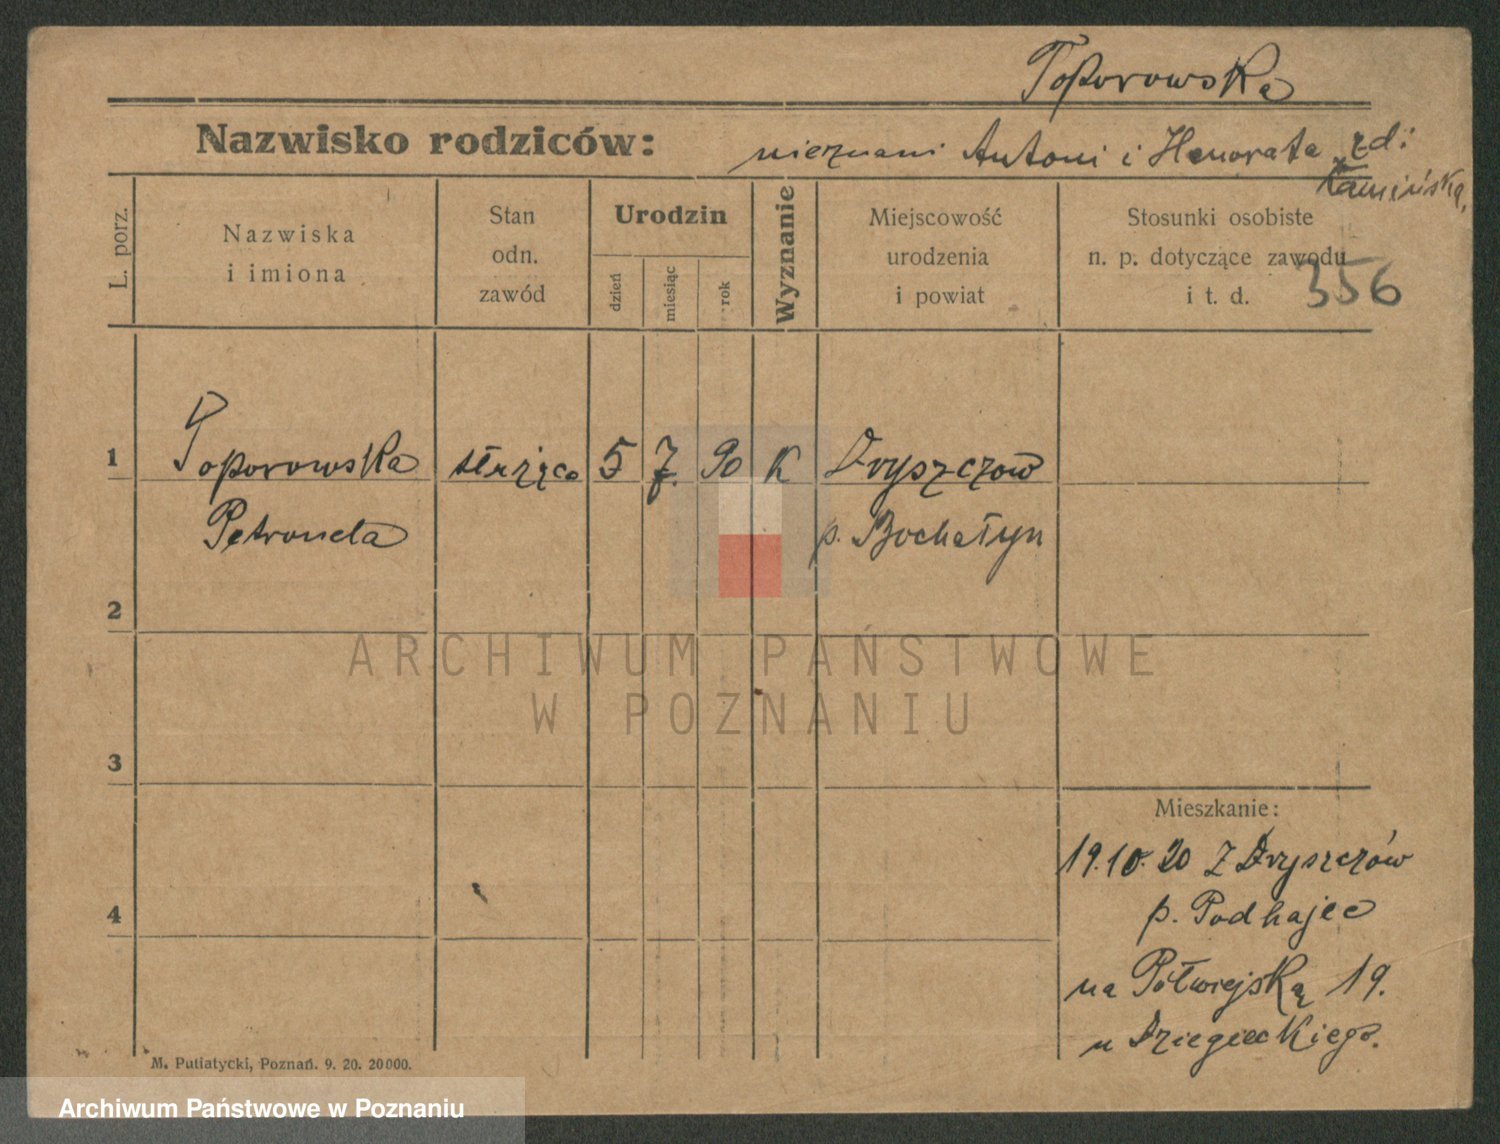 Toporowska
Nazwisko rodziców: nieznani Antoni i Honorata zd:
Kamińska,
L. porz.
Nazwiska
i imiona
Stan
odn.
zawód
Urodzin
dzień
miesiąc
rok
Wyznanie
Miejscowość
urodzenia
i powiat
Stosunki osobiste
n. p. dotyczące zawodu
i t. d.
356
1 Toporowska służąca 5 7. 90 K Dryszczow
Petronela p. Bochatyn
2
3
4
Mieszkanie:
19.10.20 Z Dryszczów
p. Podhajce
na Półwiejską 19.
u Dziegieckiego.
M. Putiatycki, Poznań. 9. 20. 20000.
ARCHIWUM PAŃSTWOWE
W POZNANIU
Archiwum Państwowe w Poznaniu